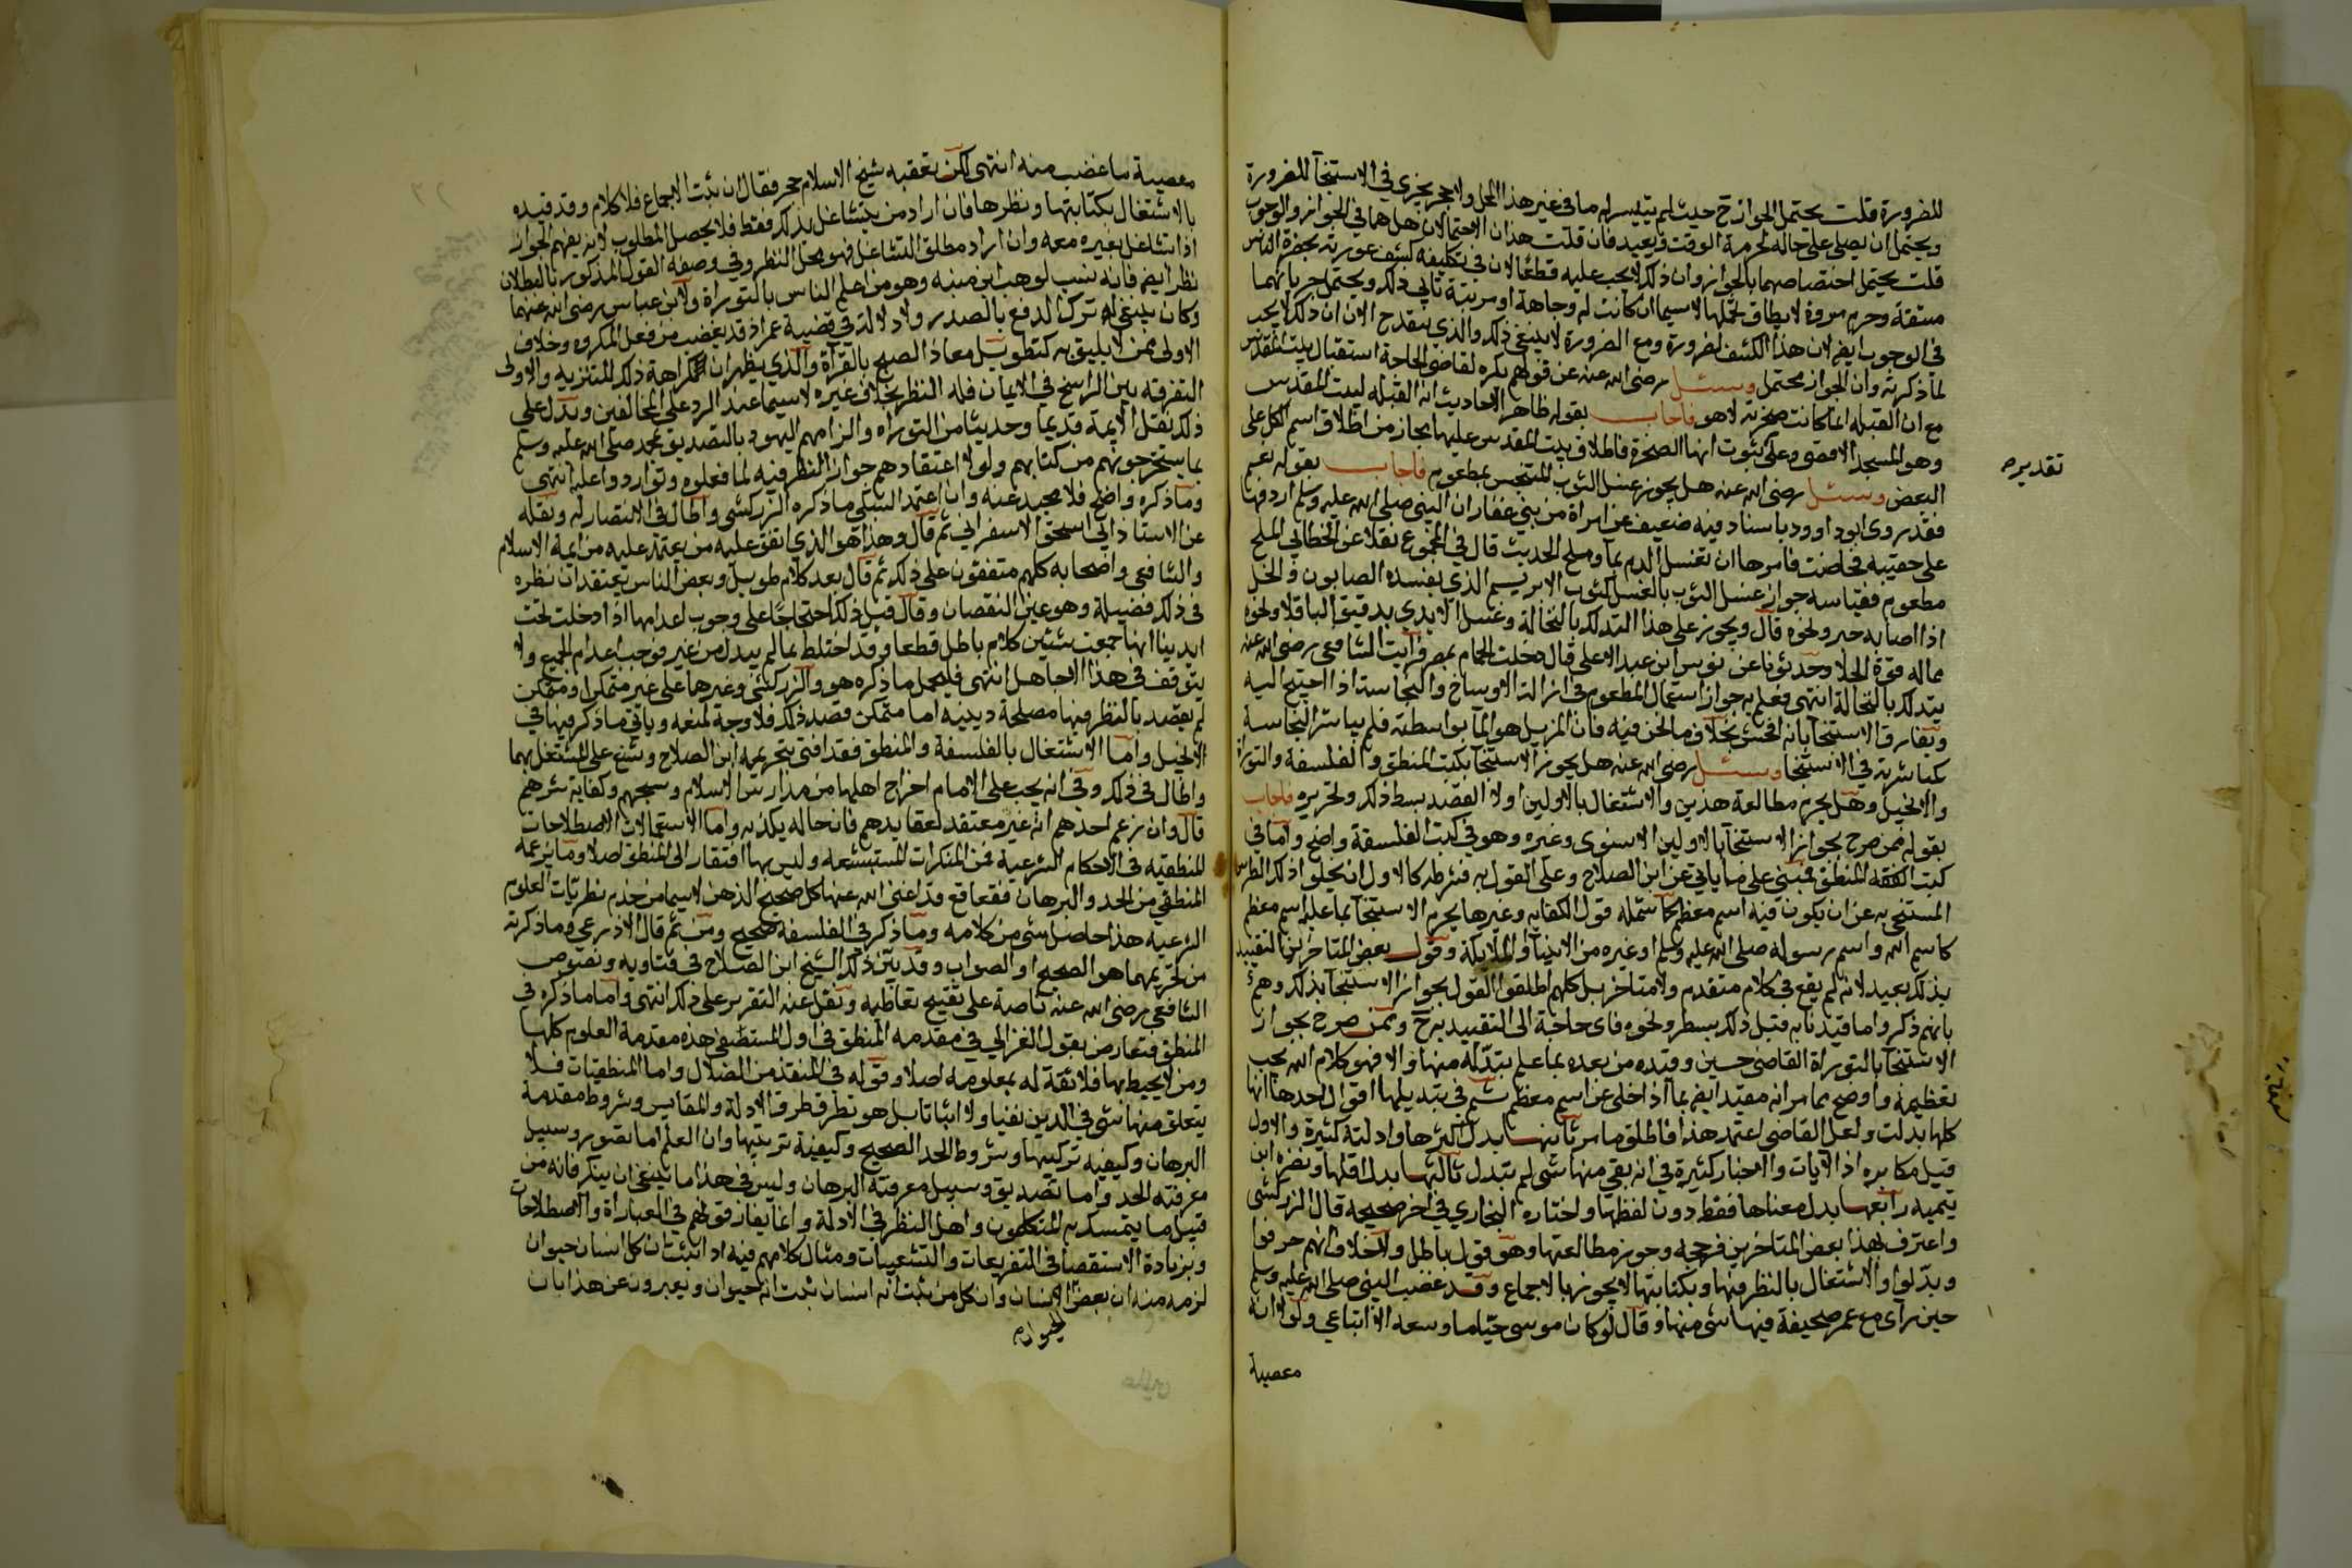 للضرورة قلت يحتمل الجواز ح حيث لم يتيسر له ما في غير هذا المحل ولا حجر يجزي في الاستنجآ للضرورة
ويحتمل ان يصلي على حاله لحرمة الوقت ويعيد فان قلت هذان الاحتمالان هل هما في الجواز والوجوب
قلت يحتمل اختصاصهما بالجواز وان ذلك لا يجب عليه قطعا لان في تكليفه كشف عورته بحضرة الناس
مشقة وخرم مروة لا يطاق تحملها لاسيما ان كانت له وجاهة او مرتبة تابى ذلك ويحتمل جريانهما
في الوجوب ايضا لان هذا الكشف لضرورة ومع الضرورة لا ينبغي ذلك والذي ينقدح الان ان ذلك لا يجب
لما ذكرته وان الجواز محتمل وسئل رضي الله عنه عن قولهم يكره لقاضي الحاجة استقبال بيت المقدس
مع ان القبلة انما كانت صخرته لا هو فاجاب بقوله ظاهر الاحاديث ان القبلة بيت المقدس
وهو المسجد الاقصى وعلى ثبوت انها الصخرة فاطلاق بيت المقدس عليها مجاز من اطلاق اسم الكل على
البعض وسئل رضي الله عنه هل يجوز غسل الثوب المتنجس بمطعوم فاجاب بقوله نعم
فقد روى ابو داوود باسناد فيه ضعيف عن امراة من بني غفار ان النبي صلى الله عليه وسلم اردفها
على حقيبة فحاضت فامرها ان تغسل الدم بماء وملح الحديث قال في المجموع نقلا عن الخطابي الملح
مطعوم فقياسه جواز غسل الثوب بالعسل كثوب الابريسم الذي يفسده الصابون والخل
اذا اصابه حبر ونحوه قال ويجوز على هذا التدلك بالنخالة وغسل الايدي بدقيق الباقلا ونحوه
مما له قوة الجلا وحدثونا عن يونس ابن عبد الاعلى قال دخلت الحمام بمصر فرآيت الشافعي رضي الله عنه
يتدلك بالنخالة انتهى فعلم به جواز استعمال المطعوم في ازالة الاوساخ والنجاسة اذا احتيج اليه
ويفارق الاستنجا بانه افحش بخلاف ما نحن فيه فان المزيل هو المآ بواسطته فلم يباشر النجاسة
كمباشرته في الاستنجا وسئل رضي الله عنه هل يجوز الاستنجآ بكتب المنطق والفلسفة والتوراة
والانجيل وهل يحرم مطالعة هذين والاشتغال بالاولين او لا القصد بسط ذلك وتحريره فاجاب
بقوله فمن صرح بجواز الاستنجآ بالاولين الاسنوي وغيره وهو في كتب الفلسفة واضح واما في
كتب المنطق فمبني على ما ياتي عن ابن الصلاح وعلى القول به فشرطه كالاول ان يخلو اذ ذلك القرطاس
المستنجى به عن ان يكون فيه اسم معظم كما شمله قول الكفاية وغيرها يحرم الاستنجآ بما عليه اسم معظم
كاسم الله واسم رسوله صلى الله عليه وسلم او غيره من الانبيآ والملايكة وقول بعض المتاخرين التقييد
بذلك بعيد لانه لم يقع في كلام متقدم ولا متاخر بل كلهم اطلقوا القول بجواز الاستنجآ بذلك وهم
بانهم ذكروا ما قيدنا به قبل ذلك بسطر ونحوه فاى حاجة الى التقييد به ح وممن صرح بجواز
الاستنجآ بالتوراة القاضي حسين وقيده من بعده بما علم تبدله منها والا فهو كلام الله يجب
تعظيمه واوضح مما مر انه مقيد ايضا بما اذا خلى عن اسم معظم ثم في تبديلها اقوال احدها انها
كلها بدلت ولعل القاضي اعتمد هذا فاطلق ما مر ثانيها بدل اكثرها وادلته كثيرة والاول
قيل مكابرة اذ الآيات والاخبار كثيرة في انه بقي منها شى لم يتبدل ثالثها بدل اقلها ونصره ابن
تيمية رابعها بدل معناها فقط دون لفظها واختاره البخاري في اخر صحيحه قال الزركشي
واعترف بهذا بعض المتاخرين فرجحه وجوز مطالعتها وهو قول باطل ولا خلاف انهم حرفوا
وبدلوا والاشتغال بالنظر فيها وبكتابتها لا يجوز بالاجماع وقد غضب النبي صلى الله عليه وسلم
حين رأى مع عمر صحيفة فيها شى منها وقال لو كان موسى حيا ما وسعه الا اتباعي ولولا انه
معصية
تقديره
معصية ما غضب منه انتهى لكن تعقبه شيخ الاسلام حجر فقال ان ثبت الاجماع فلا كلام وقد قيده
بالاشتغال بكتابتها ونظرها فان اراد من يتشاغل بذلك فقط فلا يحصل المطلوب لانه يفهم الجواز
اذا تشاغل بغيره معه وان اراد مطلق التشاغل فهو محل النظر وفي وصفه القول المذكور بالبطلان
نظر ايضا فانه نسب لوهب ابن منبه وهو من اعلم الناس بالتوراة ولابن عباس رضي الله عنهما
وكان ينبغي له ترك الدفع بالصدر ولا دلالة في قضية عمر اذ قد يغضب من فعل المكروه وخلاف
الاولى ممن لا يليق به كتطويل معاذ الصبح بالقرآة والذي يظهر ان كراهة ذلك للتنزيه والاولى
التفرقة بين الراسخ في الايمان فله النظر بخلاف غيره لاسيما عند الرد على المخالفين ويدل على
ذلك نقل الايمة قديما وحديثا من التوراه والزامهم اليهود بالتصديق بمحمد صلى الله عليه وسلم
بما يستخرجونهم من كتابهم ولولا اعتقادهم جواز النظر فيه لما فعلوه وتواردوا عليه انتهى
وما ذكره واضح فلا محيد عنه وان اعتمد السبكي ما ذكره الزركشي واطال في الانتصار له ونقله
عن الاستاذ ابي اسحق الاسفرايني ثم قال وهذا هو الذي اتفق عليه من يعتمد عليه من ايمة الاسلام
والشافعي واصحابه كلهم متفقون على ذلك ثم قال بعد كلام طويل وبعض الناس يعتقد ان نظره
في ذلك فضيلة وهو عين النقصان وقال قبل ذلك احتجاجا على وجوب اعدامها اذا دخلت تحت
ايدينا انها جمعت شيئين كلام باطل قطعا وقد اختلط بما لم يبدل من غير فوجب اعدام الجميع ولا
يتوقف في هذا الا جاهل انتهى فليحمل ما ذكره هو والزركشي وغيرهما على غير متمكن او متمكن
لم يقصد بالنظر فيها مصلحة دينية اما متمكن قصد ذلك فلا وجه لمنعه وياتي ما ذكر فيها في
الانجيل واما الاشتغال بالفلسفة والمنطق فقد افتى بتحريمه ابن الصلاح وشنع على المشتغل بهما
واطال في ذلك وفي انه يجب على الامام اخراج اهلها من مدارس الاسلام وسجنهم وكفاية شرهم
قال وان زعم احدهم انه غير معتقد لعقايدهم فان حاله يكذبه واما الاستعمالات الاصطلاحات
المنطقيه في الاحكام الشرعية فمن المنكرات المستبشعه وليس بها افتقار الى المنطق اصلا وما يزعمه
المنطقي من الحد والبرهان فقعاقع قد اغنى الله عنها كل صحيح الذهن لاسيما من خدم نظريات العلوم
الشرعيه هذا حاصل شى من كلامه وما ذكر في الفلسفة صحيح ومن ثم قال الاذرعي وما ذكرته
من تحريمهما هو الصحيح او الصواب وقد بين ذلك الشيخ ابن الصلاح في فتاويه ونصوص
الشافعي رضي الله عنه ناصة على تقبيح تعاطيه ونقل عنه التقرير على ذلك انتهى واما ما ذكره في
المنطق فتعارض بقول الغزالي في مقدمه المنطق في اول المستصفى هذه مقدمة العلوم كلها
ومن لا يحيط بها فلا ثقة له بمعلومه اصلا وقوله في المنقذ من الضلال واما المنطقيات فلا
يتعلق منها شى في الدين نفيا ولا اثباتا بل هو نظر في طرق الادلة والمقايس وشروط مقدمة
البرهان وكيفيه تركيبها وشروط الحد الصحيح وكيفية ترتيبها وان العلم اما تصور وسبيل
معرفته الحد واما تصديق وسبيل معرفته البرهان وليس في هذا ما ينبغي ان ينكر فانه من
قبيل ما يتمسك به المتكلمون واهل النظر في الادلة وانما يفارقونهم في العبارة والاصطلاحات
وبزيادة الاستقصا في التفريعات والتشعيبات ومثال كلامهم فيه اذا ثبت ان كل انسان حيوان
لزمه منه ان بعض الانسان وان كل من ثبت انه انسان ثبت انه حيوان ويعبرون عن هذا بان